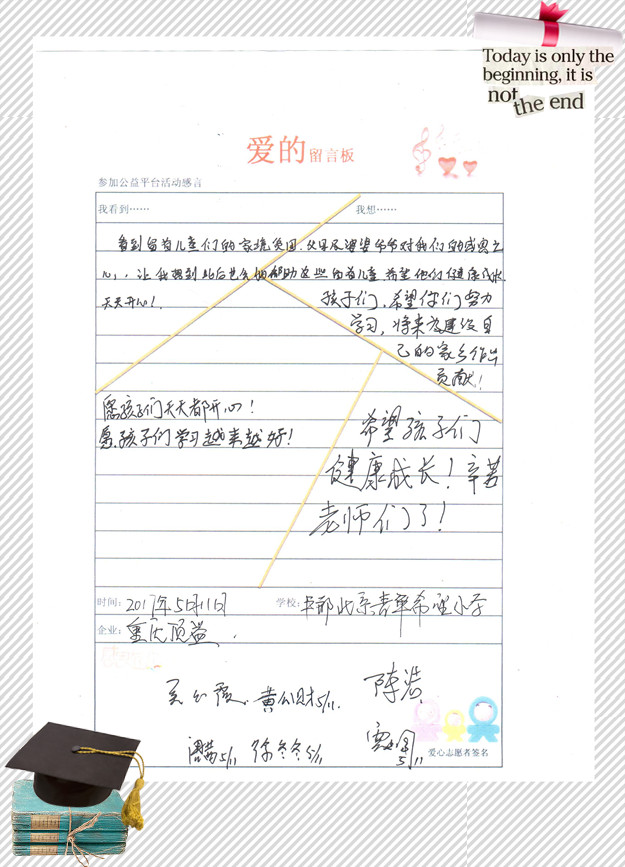 Today is only the
beginning, it is
not
the end
爱的留言板
参加公益平台活动感言
我看到…… 我想……
看到留守儿童们的家境贫困、父母不
对我们的感恩之
心，让我想到此后 帮助这些留守儿童，希望他们健康成长
天天开心！
孩子们，希望你们努力
学习，将来为建设自
己的家乡作出
贡献！
愿孩子们天天都开心！
愿孩子们学习越来越好！
希望孩子们
健康成长！辛苦
老师们了！
时间：2017年5月11日 学校： 希望小学
企业：重庆顶益
陈浩
5/11.
5/11 徐冬冬5/11
5/11
爱心志愿者签名